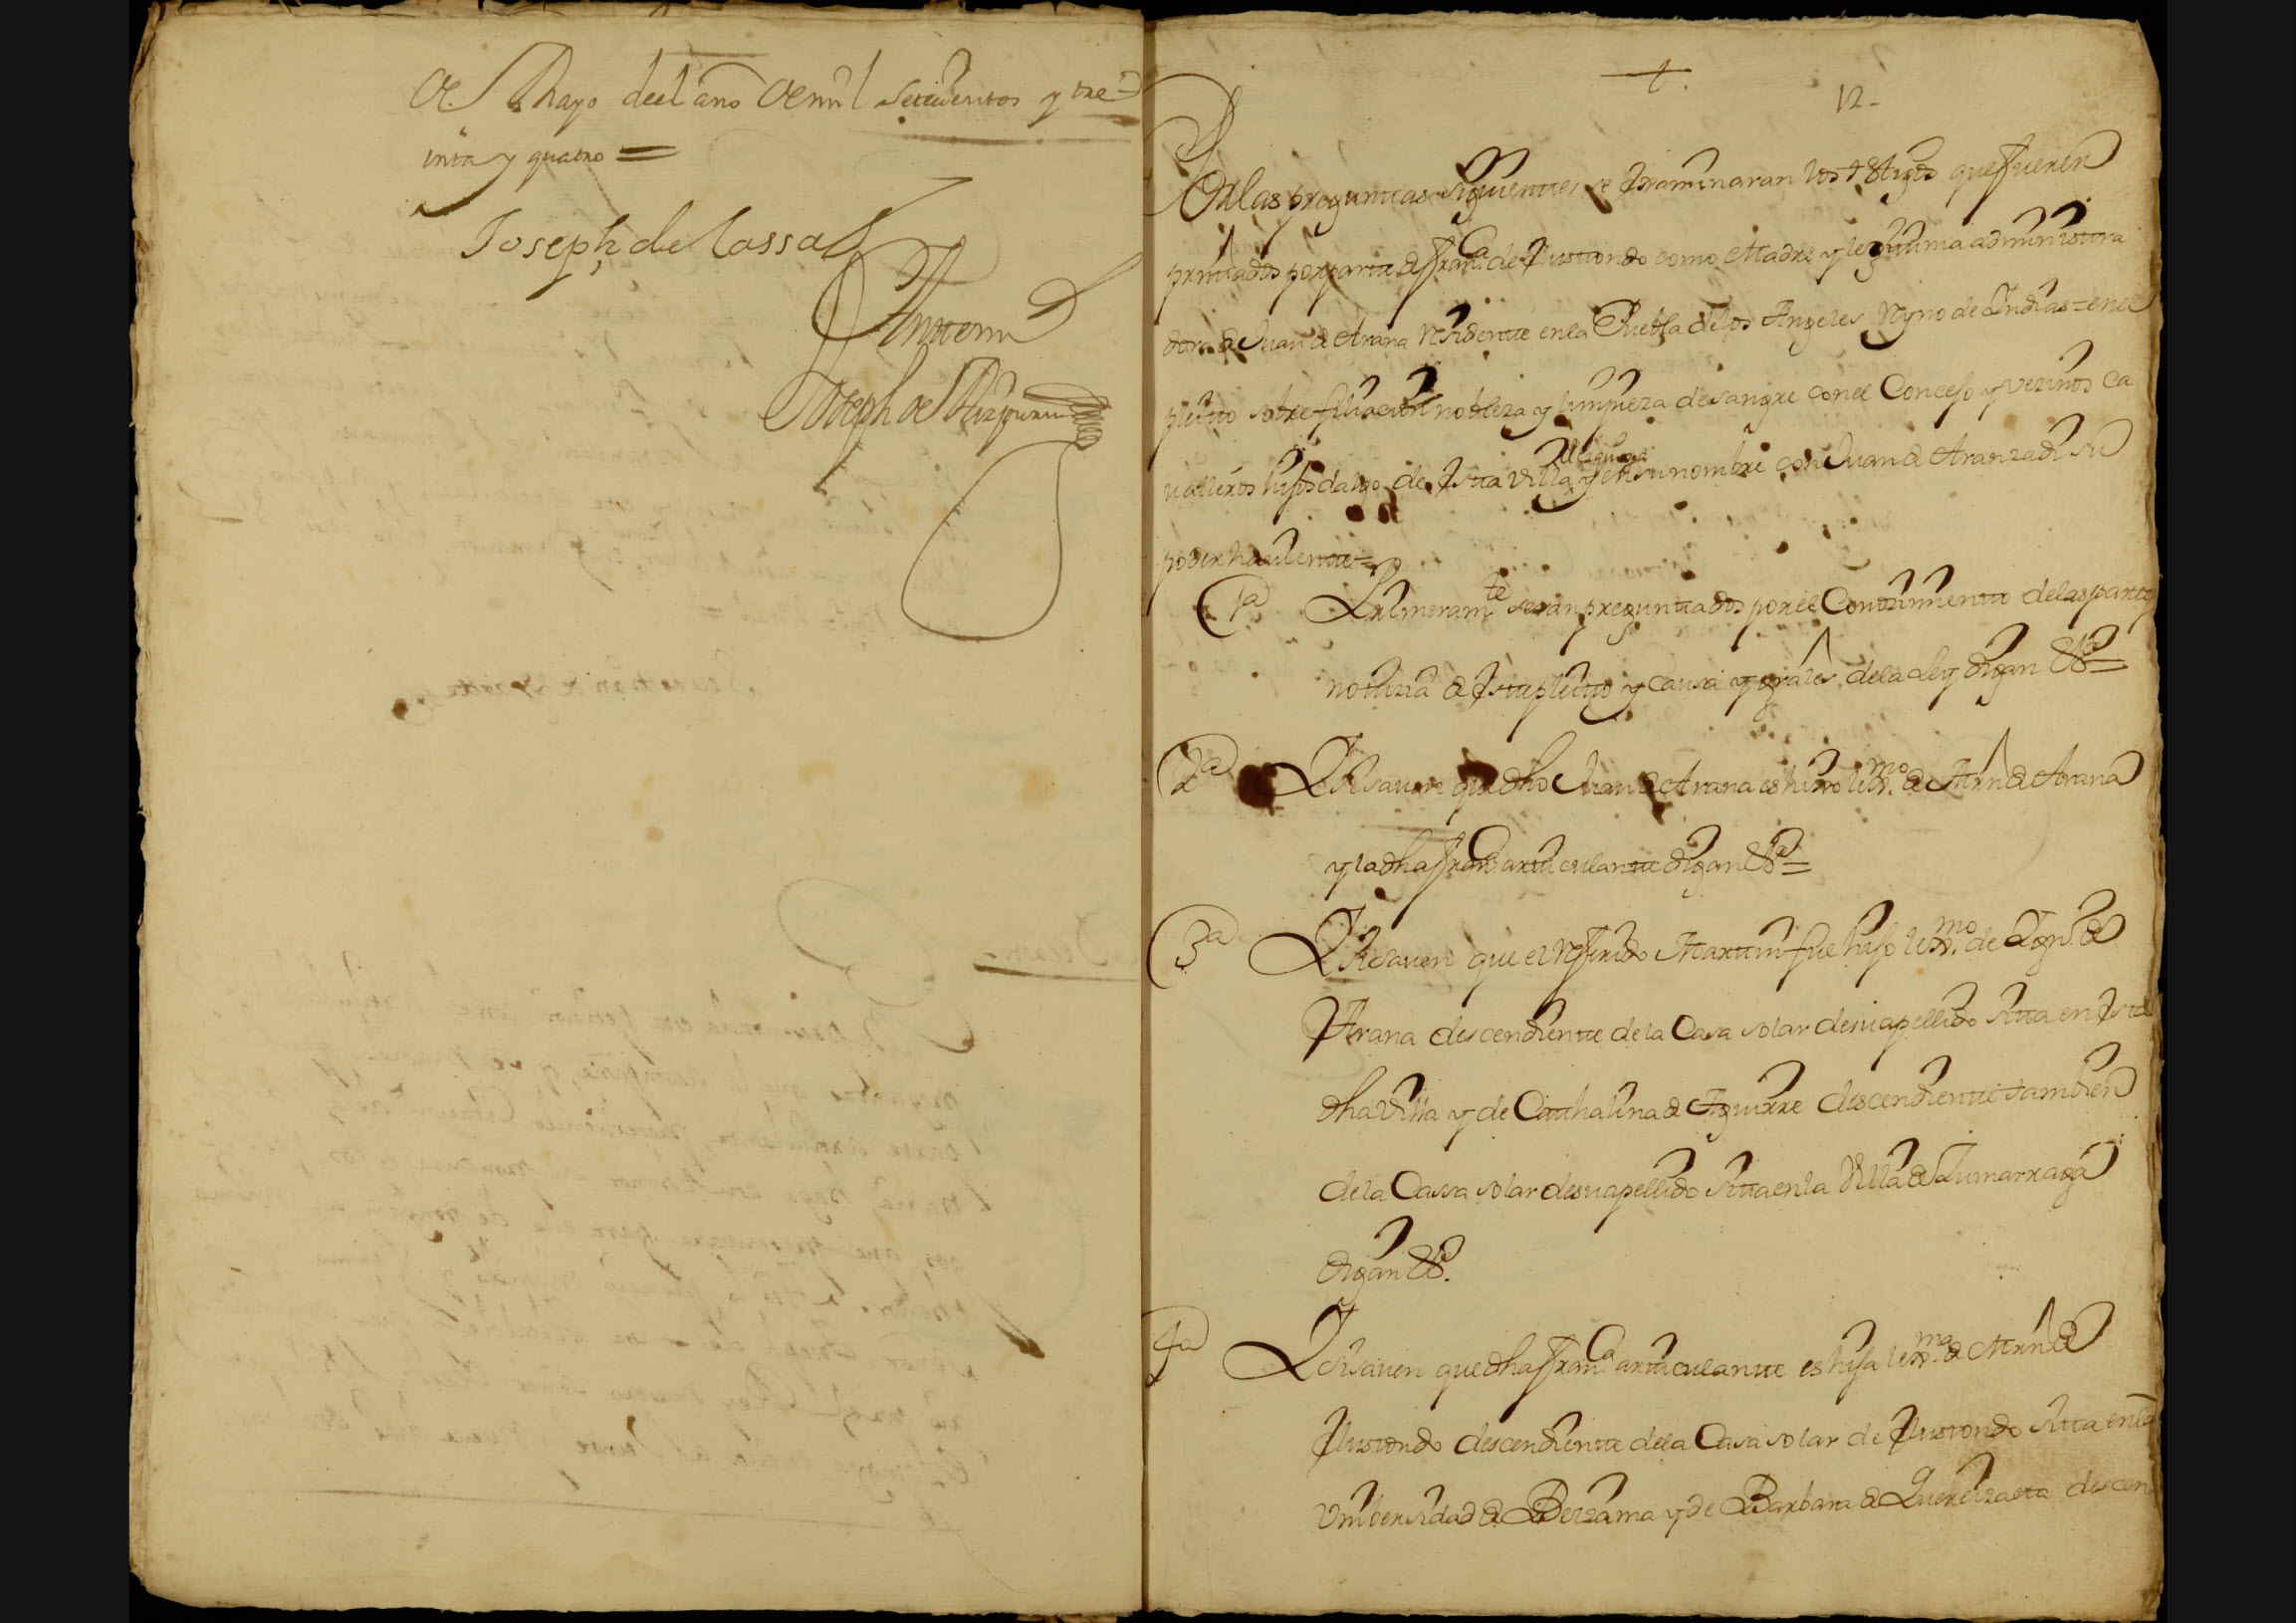 de Mayo del año de mil setecientos y tre
inta y quatro =
Joseph de Lassa
Ante mi
Joseph de
+
12-
Por las preguntas siguientes se Examinaran los testigos que fueren
presentados por parte de Fran.ca de Elustondo como Madre y legitima administra
dora de Juan de Arana Residente en la Puebla de los Angeles Reyno de Indias = en el
pleito sobre filiacion nobleza y limpieza de sangre con el Concejo y vezinos ca
ualleros hijosdalgo de Esta villa y en su nombre con Juan de Aranzadi su
poder haviente =
1a Primeram.te seran preguntados por el Conozimiento de las partes
notizia de Este pleito y causa y grãles de la Ley digan &a =
2a Yt si saven que dho Juan de Arana es hijo lexmo. de Mrn de Arana
y la dha Fran.ca articulante digan &a =
3a Yt si saven que el Referido Martin fue hijo lexmo. de Dgo. de
Arana descendiente de la Casa solar de su apellido sita en Esta
dha Villa y de Cathalina de Aguirre descendiente tambien
de la Cassa solar de su apellido sita en la Villa de Zumarraga
digan &a.
4a Yt si saven que dha Fran.ca articulante es hija lexma. de Mrn de
Elustondo descendiente de la Casa solar de Elustondo sita en la
Unibersidad de Beizama y de Barbara de Quereizaeta descen